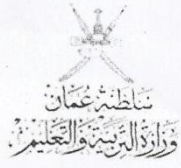 سَلطنَة عُمان
وَزَارَة التَّربيَة وَالتَّعليم